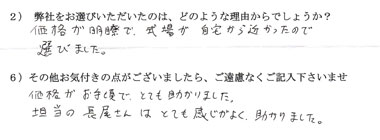 2) 弊社をお選びいただいたのは、どのような理由からでしょうか?
価格が明瞭で、式場が自宅から近かったので
選びました。
6) その他お気付きの点がございましたら、ご遠慮なくご記入下さいませ
価格がお手頃で、とても助かりました。
担当の長尾さんはとても感じがよく、助かりました。